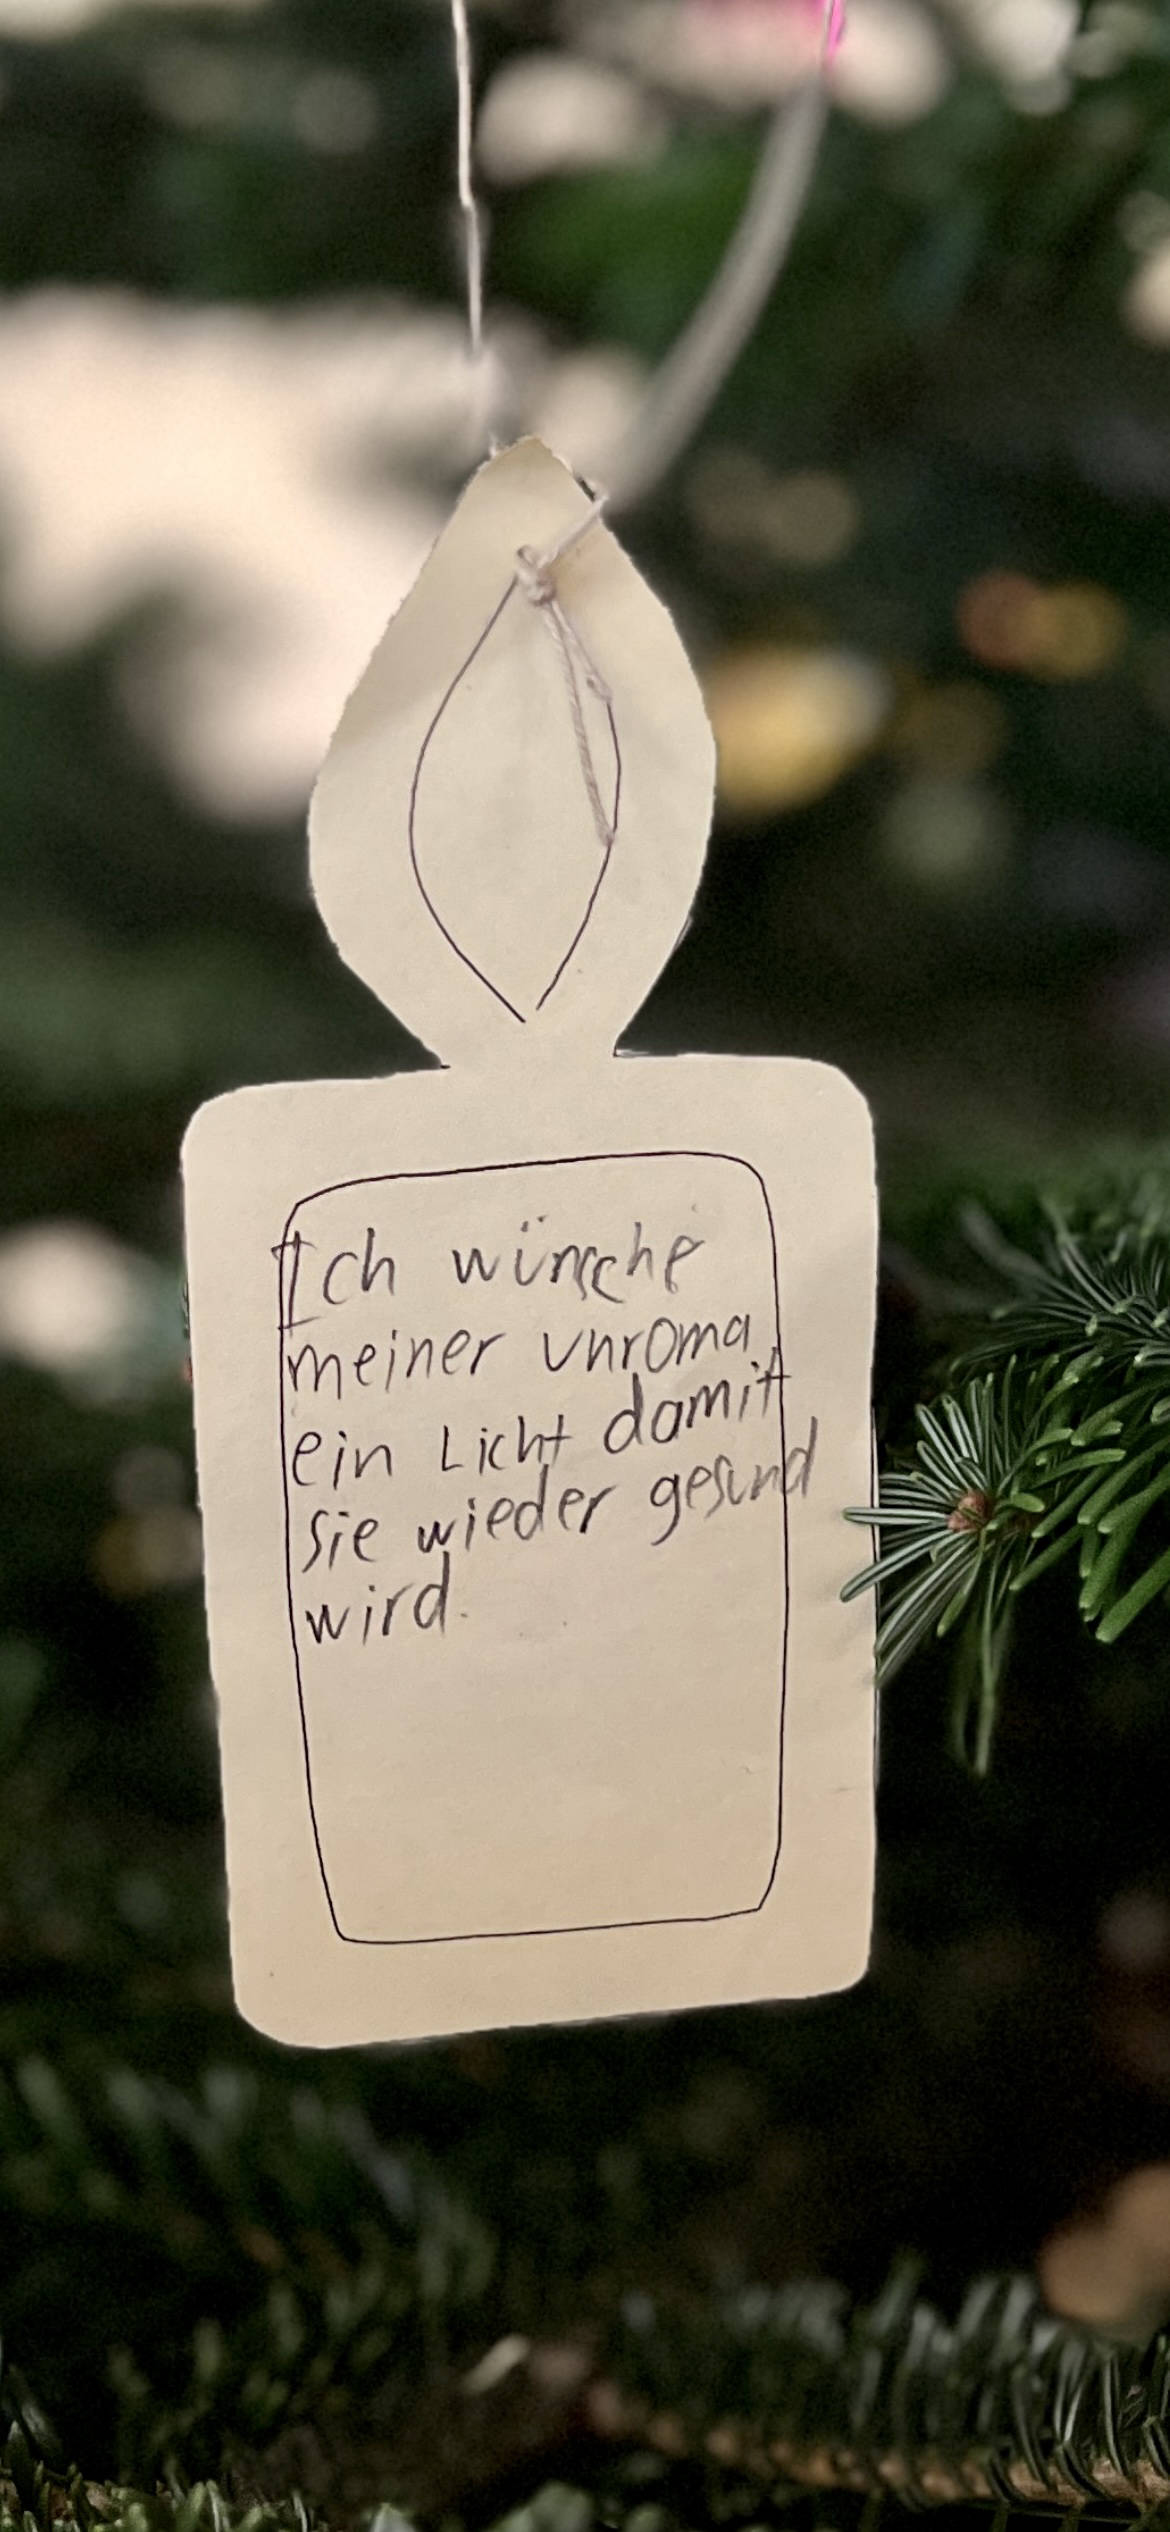 Ich wünsche
meiner Uhroma
ein Licht damit
sie wieder gesund
wird.